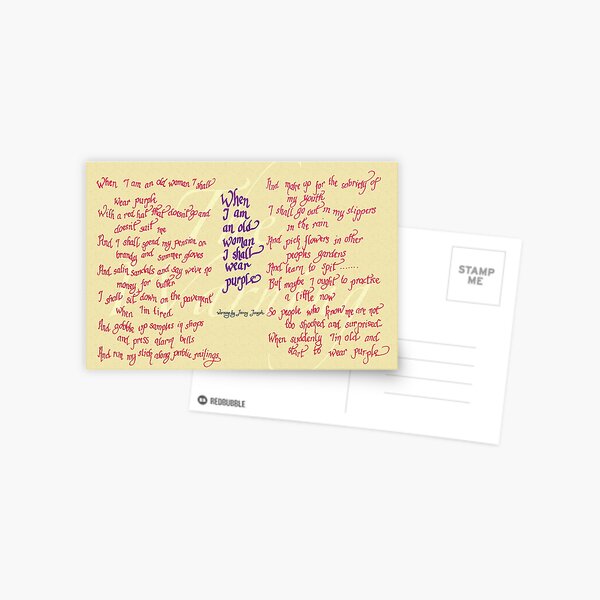 When I am an old woman I shall
wear purple
With a red hat that doesn't go and
doesn't suit me
And I shall spend my pension on
brandy and summer gloves
And satin sandals and say we've no
money for butter
I shall sit down on the pavement
when I'm tired
And gobble up samples in shops
and press alarm bells
And run my stick along public railings
When
I am
an old
woman
I shall
wear
purple
Warning by Jenny Joseph
And make up for the sobriety of
my youth
I shall go out in my slippers
in the rain
And pick flowers in other
peoples gardens
And learn to spit .......
But maybe I ought to practice
a little now
So people who know me are not
too shocked and surprised
When suddenly I'm old and
start to wear purple
STAMP
ME
REDBUBBLE